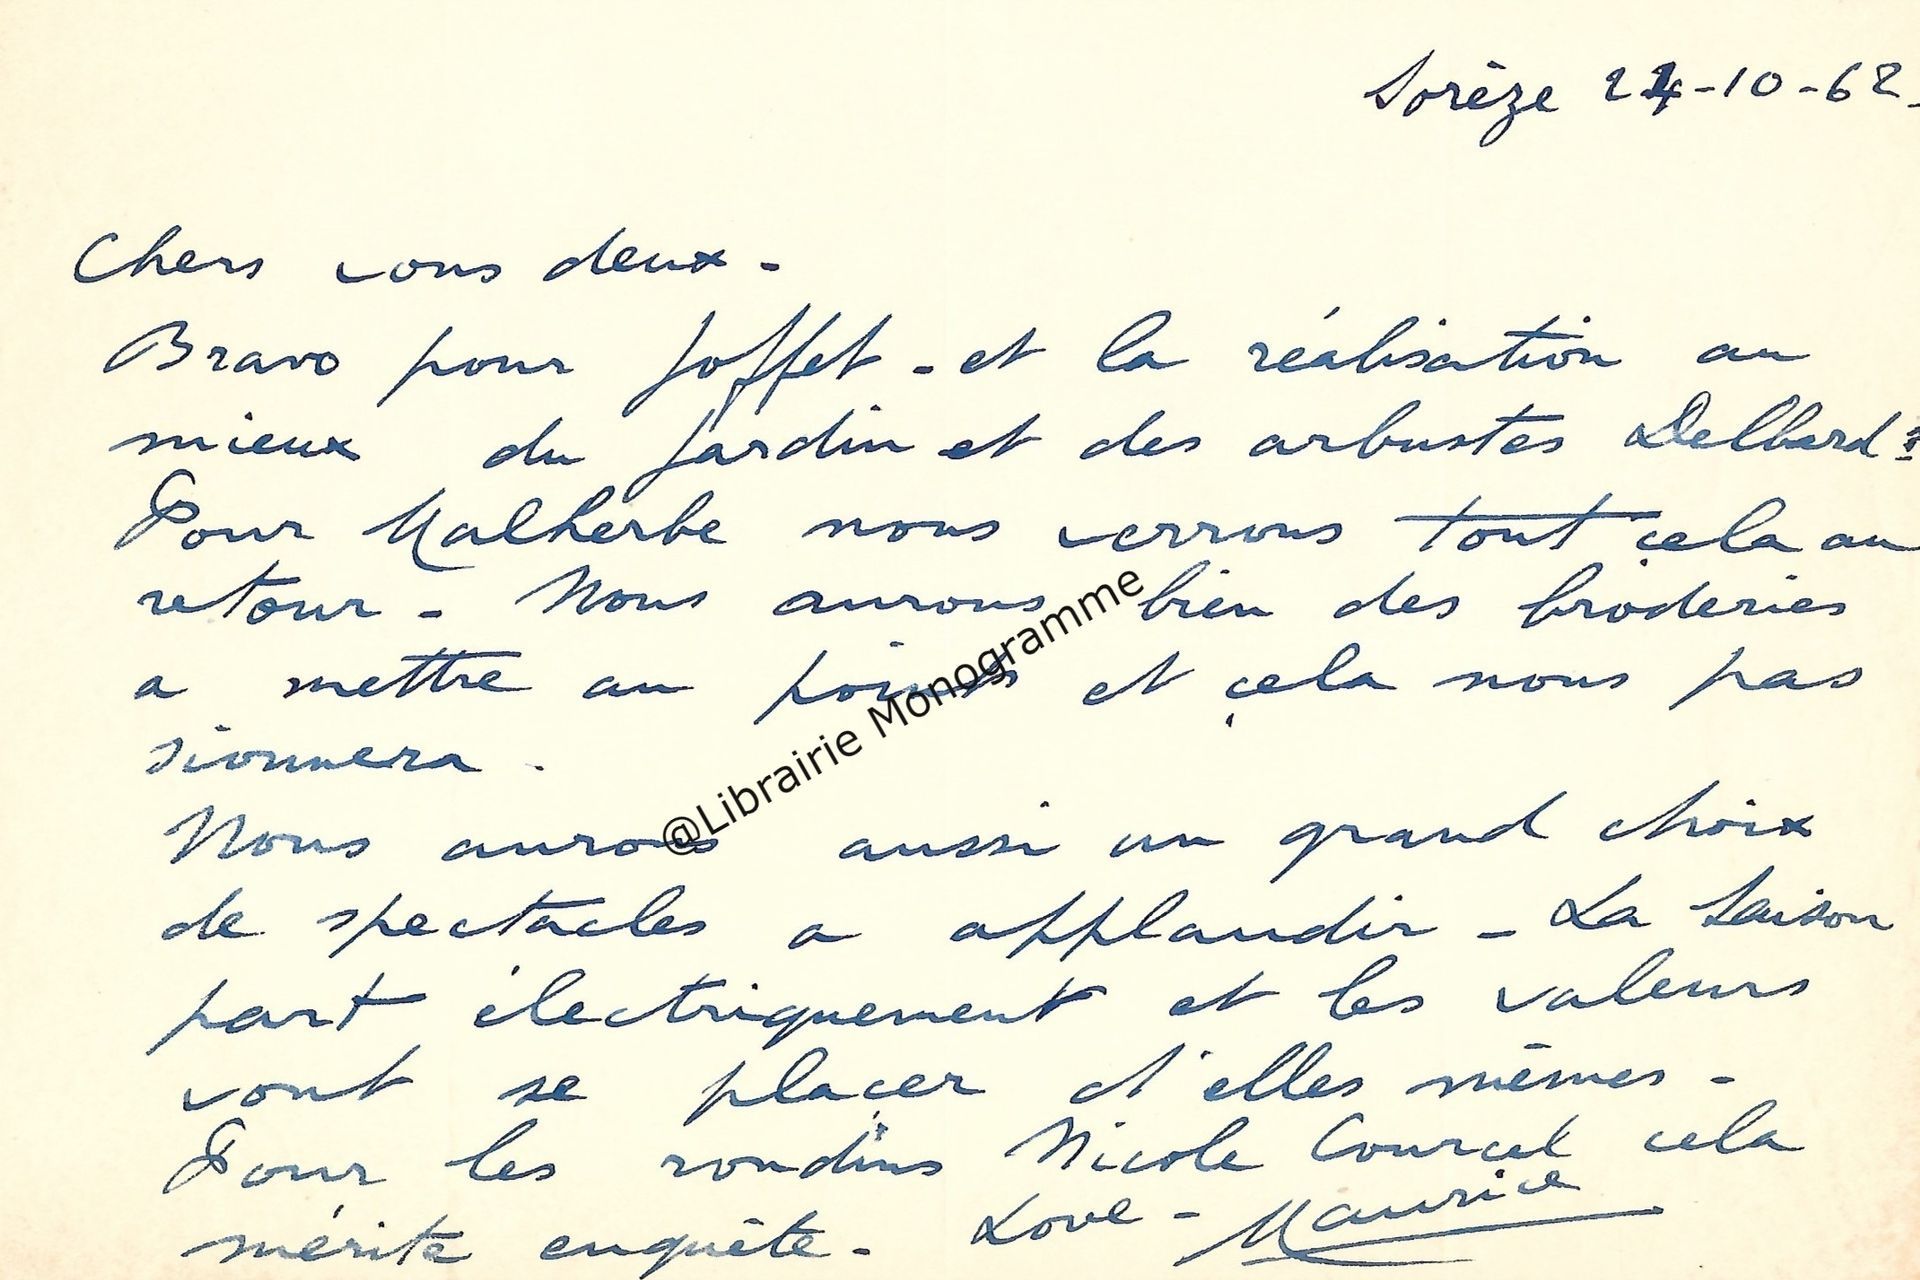 Sorèze 24-10-62.
Chers vous deux -
Bravo pour Joffet - et la réalisation au
mieux du jardin et des arbustes Delbard
Pour Malherbe nous verrons tout cela au
retour - Nous aurons bien des broderies
a mettre au points et cela nous pas
sionnera.
Nous aurons aussi un grand choix
de spectacles a applaudir - La Saison
part électriquement et les valeurs
vont se placer d'elles mêmes -
Pour les rondins Nicole Courcel cela
mérite enquête - Love - Maurice
@Librairie Monogramme